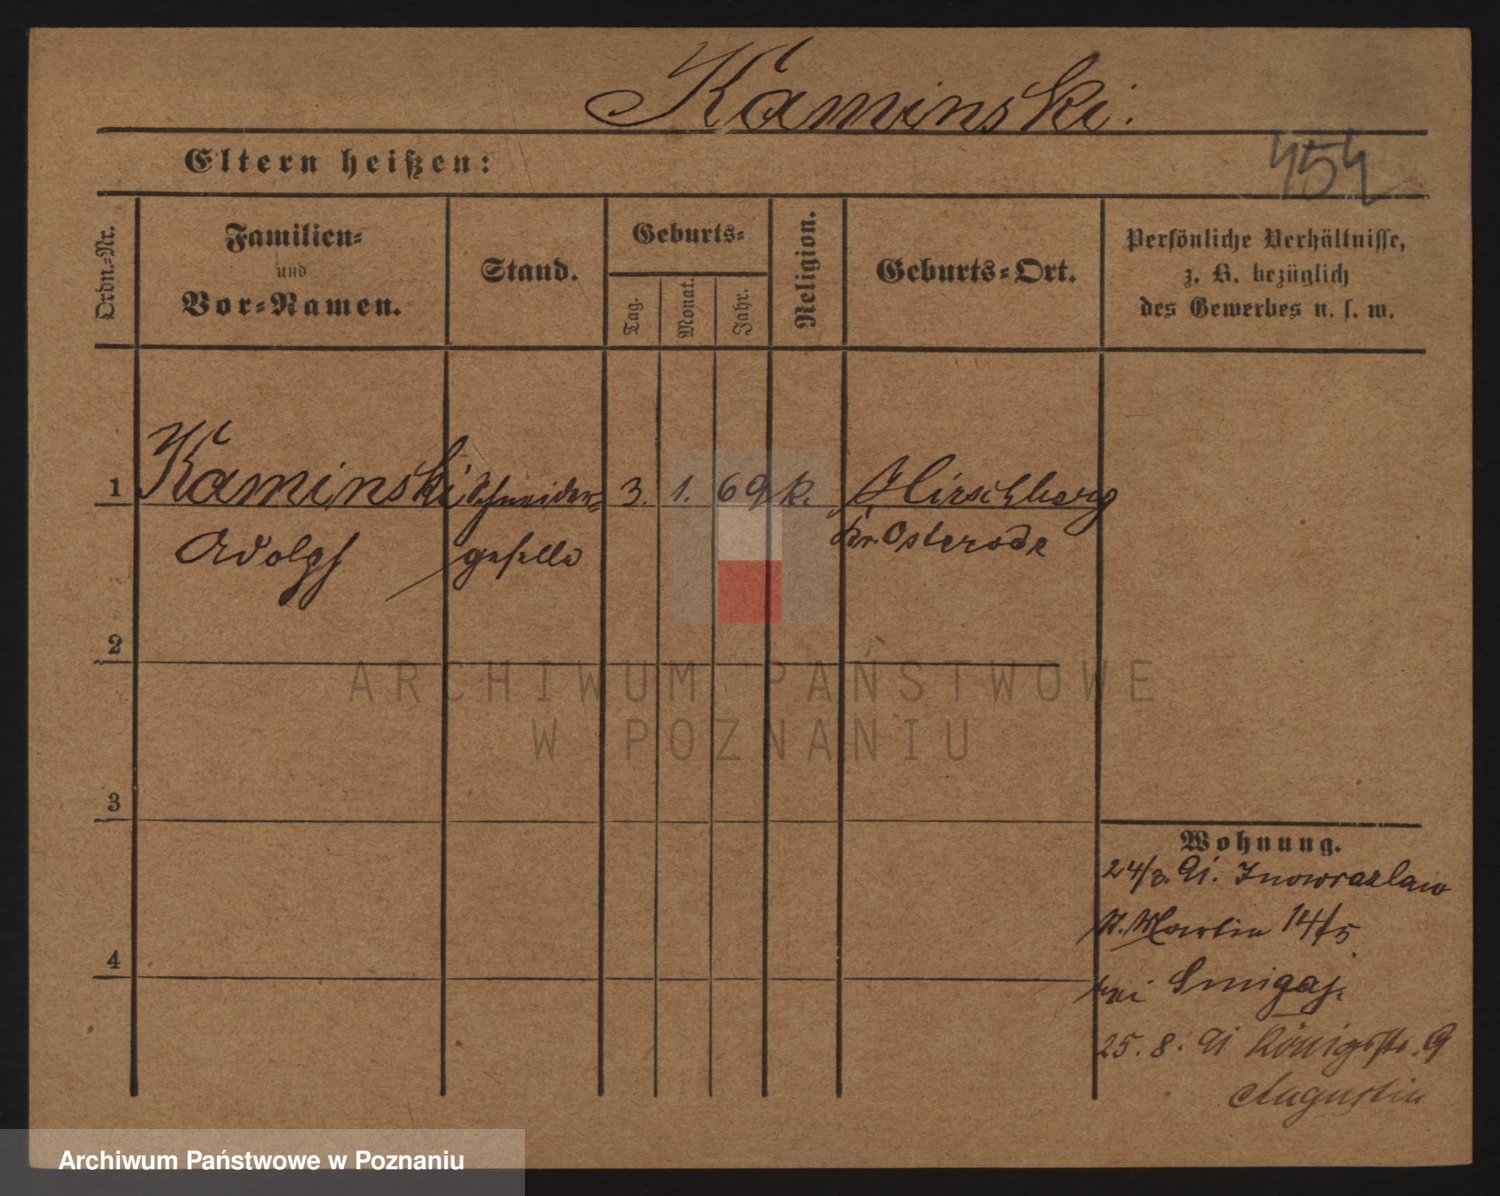 Kaminski.
454
Eltern heißen:
Ordn.-Nr.
Familien-
und
Vor-Namen.
Stand.
Geburts-
Tag.
Monat.
Jahr.
Religion.
Geburts-Ort.
Persönliche Verhältnisse,
z. B. bezüglich
des Gewerbes u. s. w.
1 Kaminski Schneider- 3. 1. 69 k. Hirschberg
Adolf geselle Kr. Osterode
2
3
4
Wohnung.
24/3. 91. Inowrazlaw
St. Martin 14/15
bei Smigaj.
25. 8. 91 Königsstr. 9
Augustin
ARCHIWUM PAŃSTWOWE
W POZNANIU
Archiwum Państwowe w Poznaniu